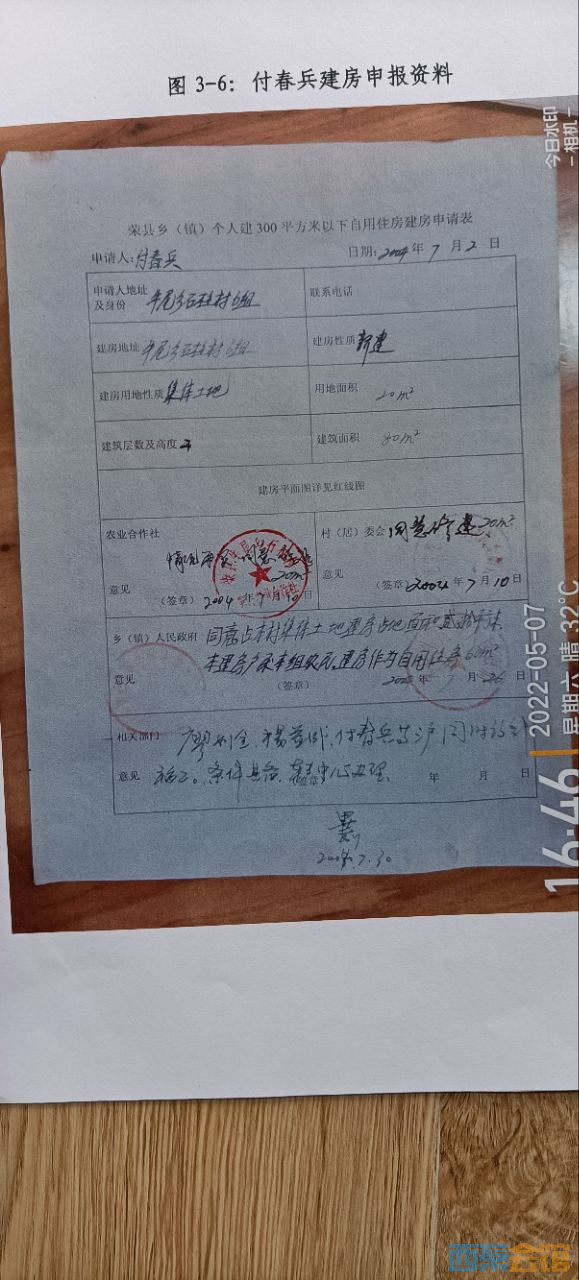 图 3-6：付春兵建房申报资料
今日水印
-相机-
荣县乡（镇）个人建300平方米以下自用住房建房申请表
申请人:付春兵 日期:2004年7月2日
申请人地址及身份 牟尾乡石柱村6组 联系电话
建房地址 牟尾乡石柱村6组 建房性质 新建
建房用地性质 集体土地 用地面积 20m²
建筑层数及高度 建筑面积 80m²
建房平面图详见红线图
农业合作社 村（居）委会 同意修建20m²
情况 同意
20m²
意见 意见
（签章）2004年7月10日 （签章）2004年7月10日
乡（镇）人民政府 同意占本村集体土地建房占地面积贰拾平米
本组农民,建房作为自用住房
意见 （签章） 7月26日
相关部门 付春兵等
意见 条件具备 办理 年 月 日
2004.7.30
2022-05-07
星期六 晴 32°C
16:46
西秦会馆